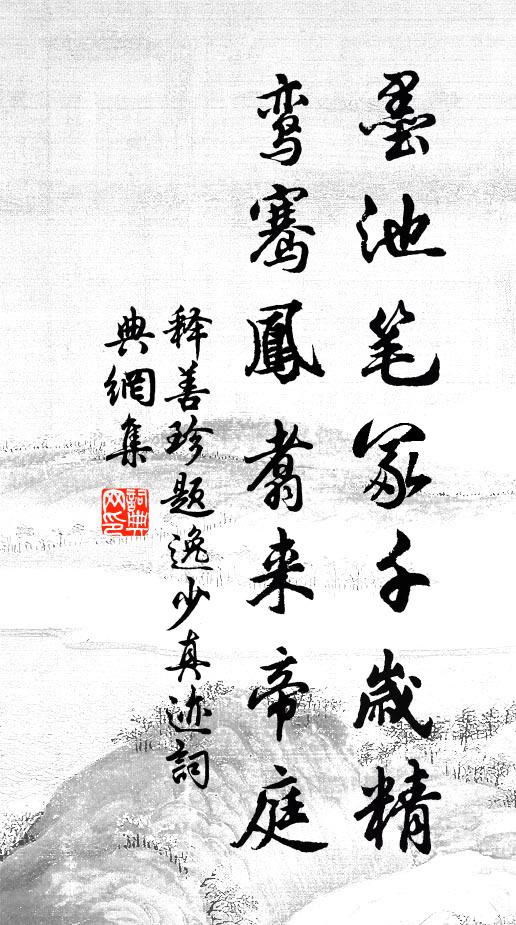 墨池笔冢千歳精
鸾骞鳳翥来帝庭
释善珍题逸少真迹詞
典網集
詞典網印